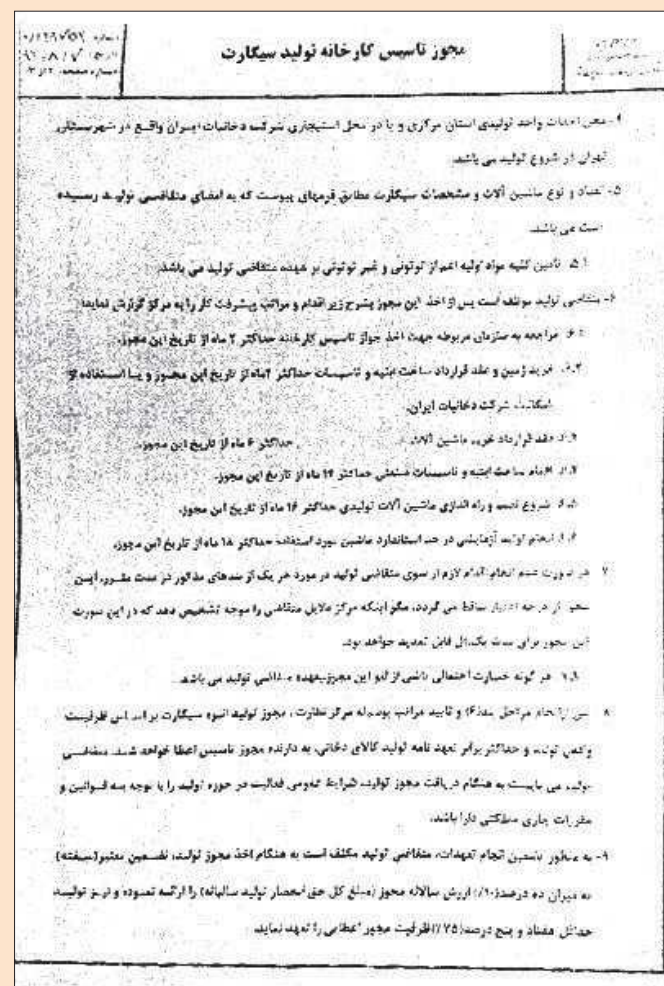 مجوز تاسیس کارخانه تولید سیگارت
شماره صفحه: ۲ از ۳
۴- محل احداث واحد تولیدی استان مرکزی و یا در محل استیجاری شرکت دخانیات ایران واقع در شهرستان
تهران در شروع تولید می باشد.
۵- تعداد و نوع ماشین آلات و مشخصات سیگارت مطابق فرمهای پیوست که به امضای متقاضی تولید رسیده
است می باشد.
۵.۱ تامین کلیه مواد اولیه اعم از توتونی و غیر توتونی بر عهده متقاضی تولید می باشد.
۶- متقاضی تولید موظف است پس از اخذ این مجوز بشرح زیر اقدام و مراتب پیشرفت کار را به مرکز گزارش نماید:
۶.۱. مراجعه به سازمان مربوطه جهت اخذ جواز تاسیس کارخانه حداکثر ۲ ماه از تاریخ این مجوز.
۶.۲. خرید زمین و عقد قرارداد ساخت ابنیه و تاسیسات حداکثر ماه از تاریخ این مجوز و یا استفاده از
امکانات شرکت دخانیات ایران.
۶.۳. عقد قرارداد خرید ماشین آلات حداکثر ۶ ماه از تاریخ این مجوز.
۶.۴. اتمام ساخت ابنیه و تاسیسات صنعتی حداکثر ۱۴ ماه از تاریخ این مجوز.
۶.۵. شروع نصب و راه اندازی ماشین آلات تولیدی حداکثر ۱۶ ماه از تاریخ این مجوز.
۶.۶. انجام تولید آزمایشی در حد استاندارد ماشین مورد استفاده حداکثر ۱۸ ماه از تاریخ این مجوز.
۷- در صورت عدم انجام اقدام لازم از سوی متقاضی تولید در مورد هر یک از بندهای مذکور در مدت مقرر، این
مجوز از درجه اعتبار ساقط می گردد، مگر اینکه مرکز دلایل متقاضی را موجه تشخیص دهد که در این صورت
این مجوز برای مدت یکسال قابل تمدید خواهد بود.
۷.۱. هر گونه خسارت احتمالی ناشی از لغو این مجوز بعهده متقاضی تولید می باشد.
۸- پس از انجام مراحل بند(۶) و تایید مراتب بوسیله مرکز نظارت، مجوز تولید انبوه سیگارت بر اساس ظرفیت
واقعی تولید و حداکثر برابر تعهد نامه تولید کالای دخانی، به دارنده مجوز تاسیس اعطا خواهد شد. متقاضی
تولید می بایست به هنگام دریافت مجوز تولید، شرایط عمومی فعالیت در حوزه تولید را با توجه به قوانین و
مقررات جاری مملکتی دارا باشد.
۹- به منظور تضمین انجام تعهدات، متقاضی تولید مکلف است به هنگام اخذ مجوز تولید، تضمین معتبر(سفته)
به میزان ده درصد(۱۰٪) ارزش سالانه مجوز (مبلغ کل حق انحصار تولید سالیانه) را ارائه نموده و نیز تولید
حداقل هفتاد و پنج درصد(۷۵٪) ظرفیت مجوز اعطایی را تعهد نماید.